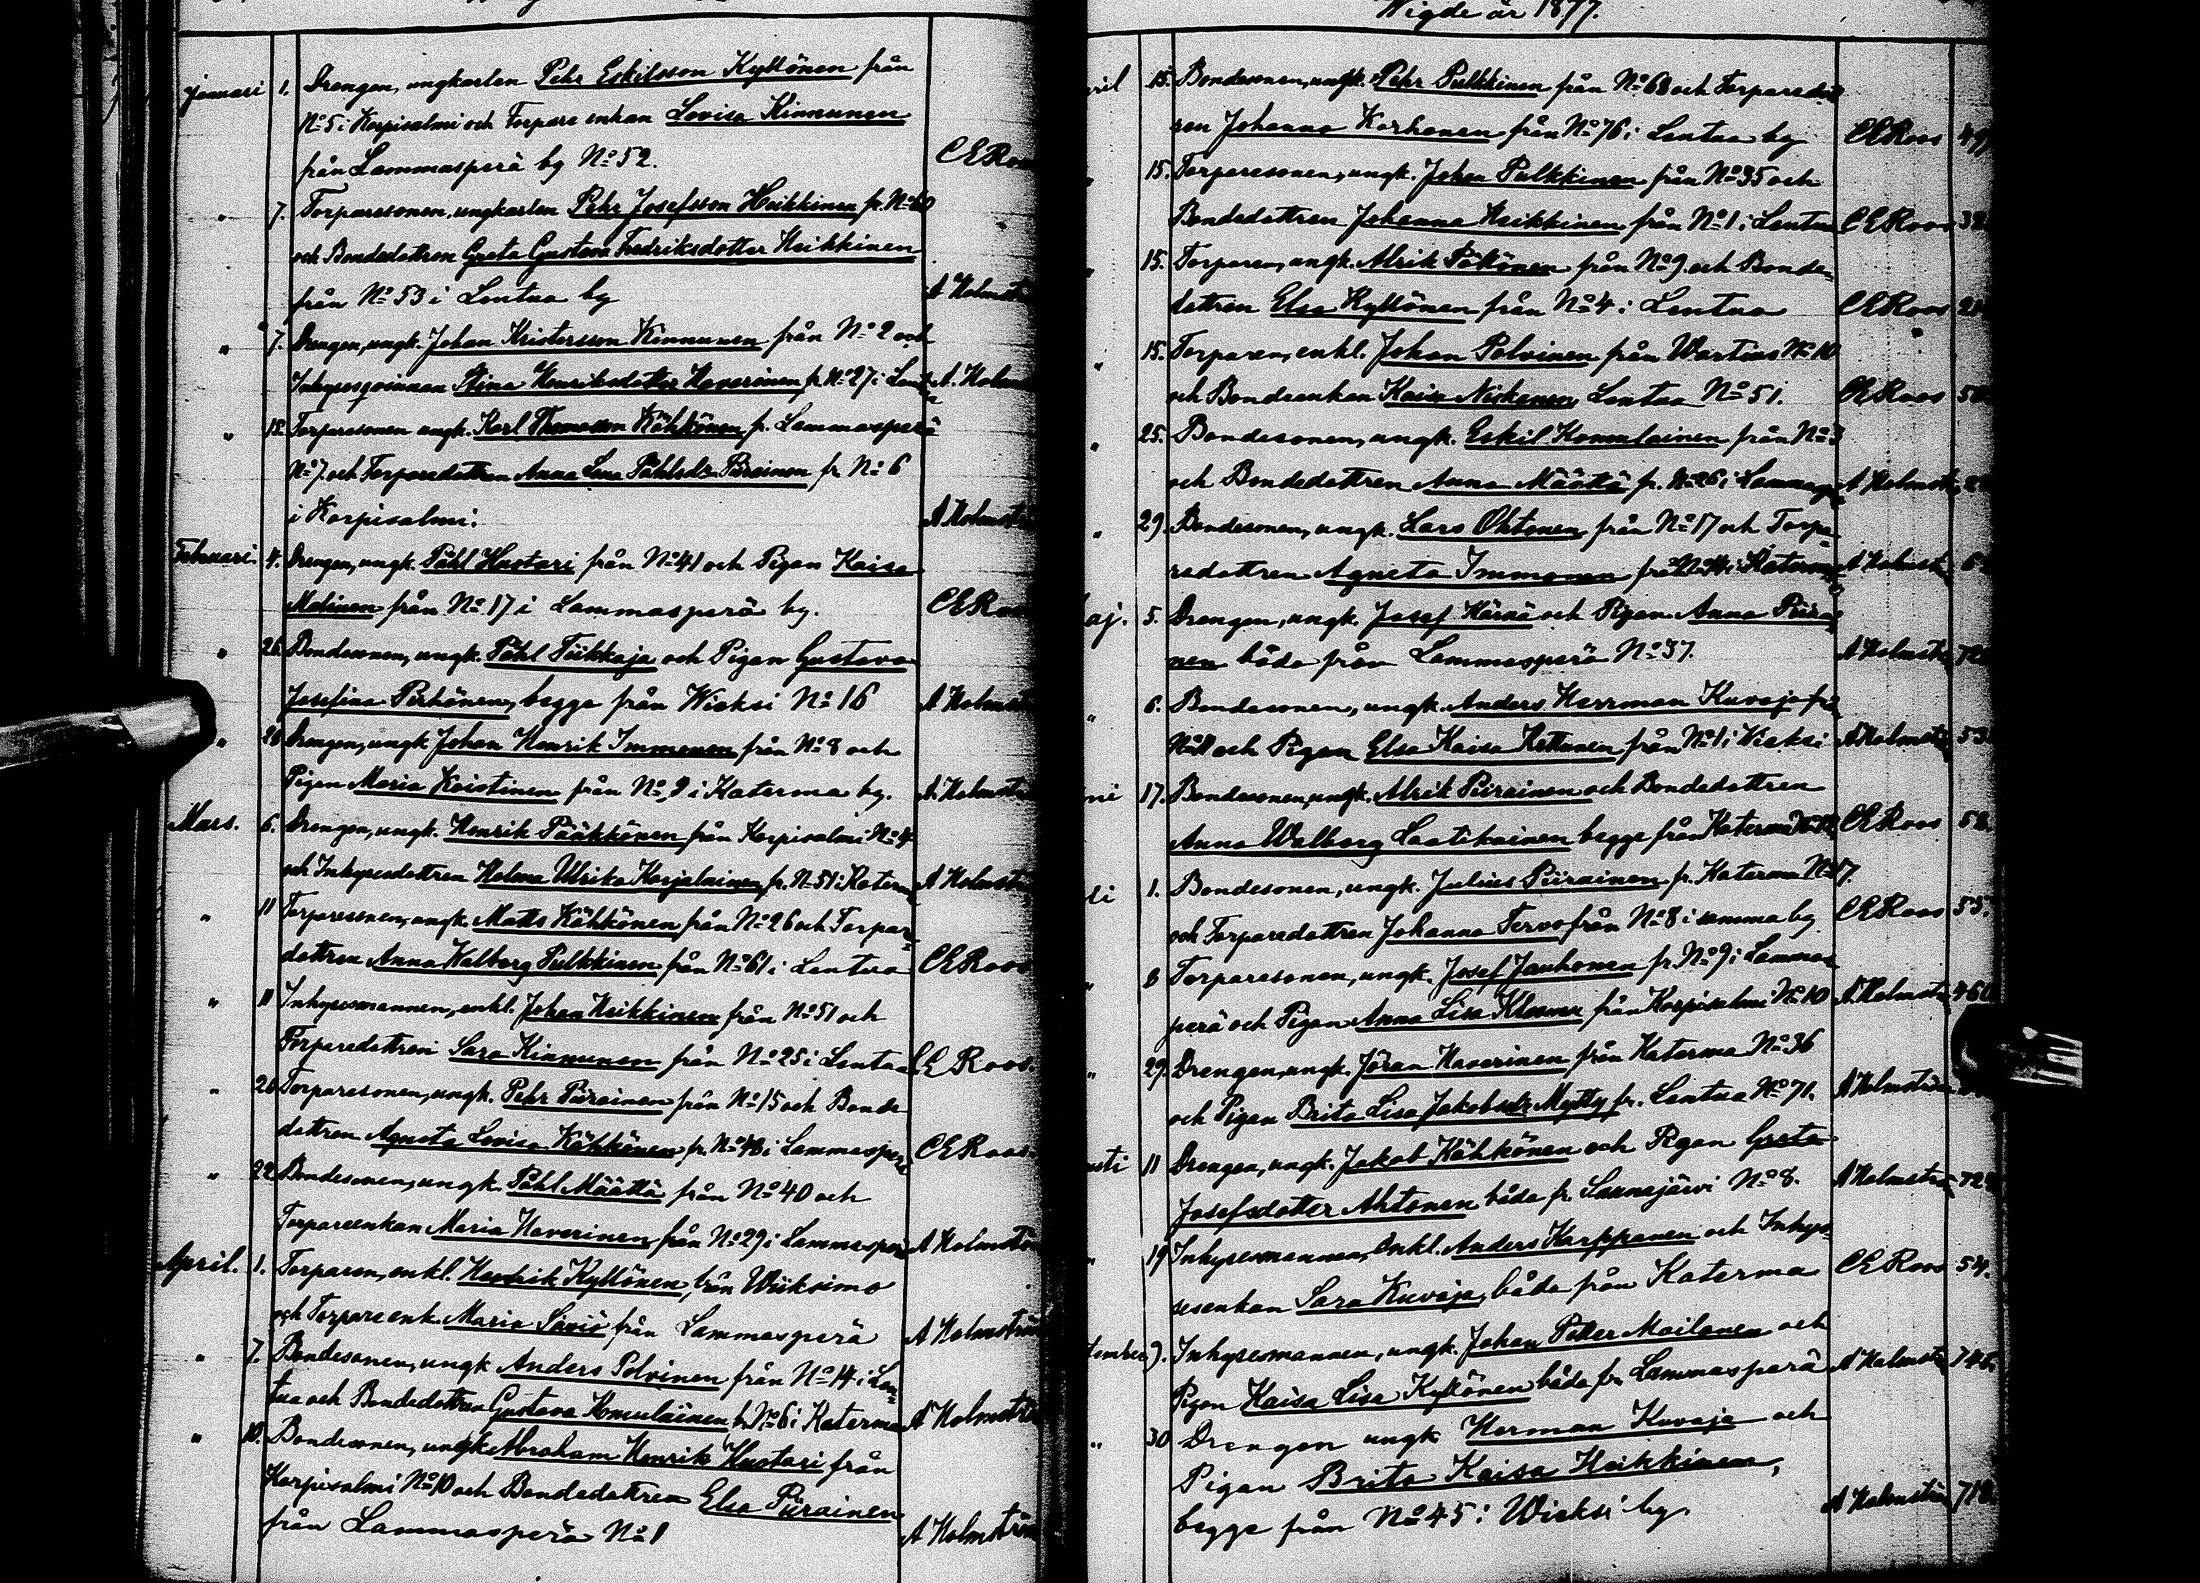 Januari 1. Drengen, ungkarlen Pehr Eskilsson Kyllönen från
No 5 i Korpisalmi och Torpare enkan Lovisa Kinnunen
från Lammasperä by No 52. CE Roos
" 7. Torparesonen, ungkarlen Pehr Josefsson Heikkinen fr. No 60
och Bondedottren Greta Gustava Fredriksdotter Heikkinen
från No 53 i Lentua by A Holmströ
" 7. Drengen, ungk. Johan Kristersson Kinnunen från No 2 och
Inhysesqvinnan Stina Henriksdotter Haverinen fr No 27 i Lentua A. Holmst
" 18. Torparesonen ungk. Karl Thomasson Kähkönen fr. Lammasperä
No 7 och Torparedottren Anna Lena Påhlsdr Piirainen fr No 6
i Korpisalmi. A Holmströ
Februari 4. Drengen, ungk. Påhl Hustari från No 41 och Pigan Kaisa
Malinen från No 17 i Lammasperä by. CE Roos
" 26. Bondesonen, ungk. Påhl Tiikkaja och Pigan Gustava
Josefina Pirhönen, begge från Wieksi No 16 A Holmströ
" 28. Drengen, ungk Johan Henrik Immonen från No 8 och
Pigan Maria Kaistinen från No 9 i Katerma by. A. Holmströ
Mars. 6. Drengen, ungk. Henrik Pääkkönen från Korpisalmi No 4
och Inhysesdottren Helena Ulrika Karjalainen fr. No 51 i Katerma A Holmströ
" 11 Torparesonen, ungk. Matts Kähkönen från No 26 och Torpare-
dottren Anna Walborg Pulkkinen från No 61 i Lentua CE Roos
" 11 Inhysesmannen, enkl. Johan Heikkinen från No 51 och
Torparedottren Sara Kinnunen från No 25 i Lentua CE Roos.
" Torparesonen, ungk. Pehr Piirainen från No 15 och Bonde
dottren Agneta Lovisa Kähkönen fr No 48 i Lammasperä CE Roos.
" 22 Bondesonen, ungk. Påhl Määttä från No 40 och
Torpareenkan Maria Haverinen från No 29 i Lammasperä A Holmström
April. 1. Torparen, enkl. Hendrik Kyllönen, från Wiiksimo
och Torpare enk. Maria från Lammasperä A Holmström
" 7. Bondesonen, ungk Anders Polvinen från No 14 i Len-
tua och Bondedottren Gustava Komulainen fr No 6 i Katerma A Holmström
" 10. Bondesonen, ungk Abraham Henrik Hustari från
Korpisalmi No 10 och Bondedottren Elsa Piirainen
från Lammasperä No 1 A Holmström
Wigde år 1877.
ril 15. Bondesonen, ungk. Pehr Pulkkinen från No 68 och Torparedott
ren Johanna Karhonen från No 76 i Lentua by CE Roos 49
" 15. Torparesonen, ungk. Johan Pulkkinen från No 35 och
Bondedottren Johanna Heikkinen från No 1 i Lentua CE Roos 32
" 15. Torparen, ungk. Alrik Pölönen från No 9. och Bonde-
dottren Elsa Kyllönen från No 4 i Lentua CE Roos
" 15. Torparen, enkl. Johan Polvinen från Wartius No 10
och Bondeenkan Kaisa Niskanen Lentua No 51. CE Roos
" 25. Bondesonen, ungk. Eskil Komulainen från No 3
och Bondedottren Anna Määttä fr. No 26 i Lammasp A Holmst
" 29. Bondesonen, ungk. Lars Ohtonen från No 17 och Torpa-
redottren Agneta Immonen från i Katerma A Holmst
aj. 5. Drengen, ungk. Josef Härmä och Pigan Anna Piirai-
nen båda från Lammasperä No 37. A Holmst
" 6. Bondesonen, ungk. Anders Herrman Kuvaja från
och Pigan Elsa Kaisa Kettunen från No 1 i Wieksi A Holmst 53
ni 17. Bondesonen, ungk. Alrik Piirainen och Bondedottren
Anna Walborg Laatikainen begge från Katerma CE Roos 58.
li 1. Bondesonen, ungk. Julius Piirainen fr. Katerma No 17.
och Torparedottren Johanna Tervo från No 8 i samma by CE Roos 55.
" 8 Torparesonen, ungk. Josef Jauhonen fr. No 9 i Lammas-
perä och Pigan Anna Lisa Klosner från Korpisalmi No 10 A Holmst 460
" 29. Drengen, ungk. Jöran Haverinen från Katerma No 36
och Pigan Brita Lisa Jakobsdr Mytty fr. Lentua No 71. A Holmström
usti 11 Drengen, ungk. Jakob Kähkönen och Pigan Greta
Josefsdotter Ahtonen båda fr. Saunajärvi No 8. A Holmströ 72
" 19 Inhysesmannen, Enkl. Anders Karppanen och Inhy-
sesenkan Sara Kuvaja, båda från Katerma CE Roos 54.
tember 9. Inhysesmannen, ungk. Johan Petter Moilanen och
Pigan Kaisa Lisa Kyllönen båda fr. Lammasperä A Holmst 746.
" 30 Drengen ungk Herman Kuvaja och
Pigan Brita Kaisa Heikkinen,
begge från No 45 i Wieksi by. A Holmström 718